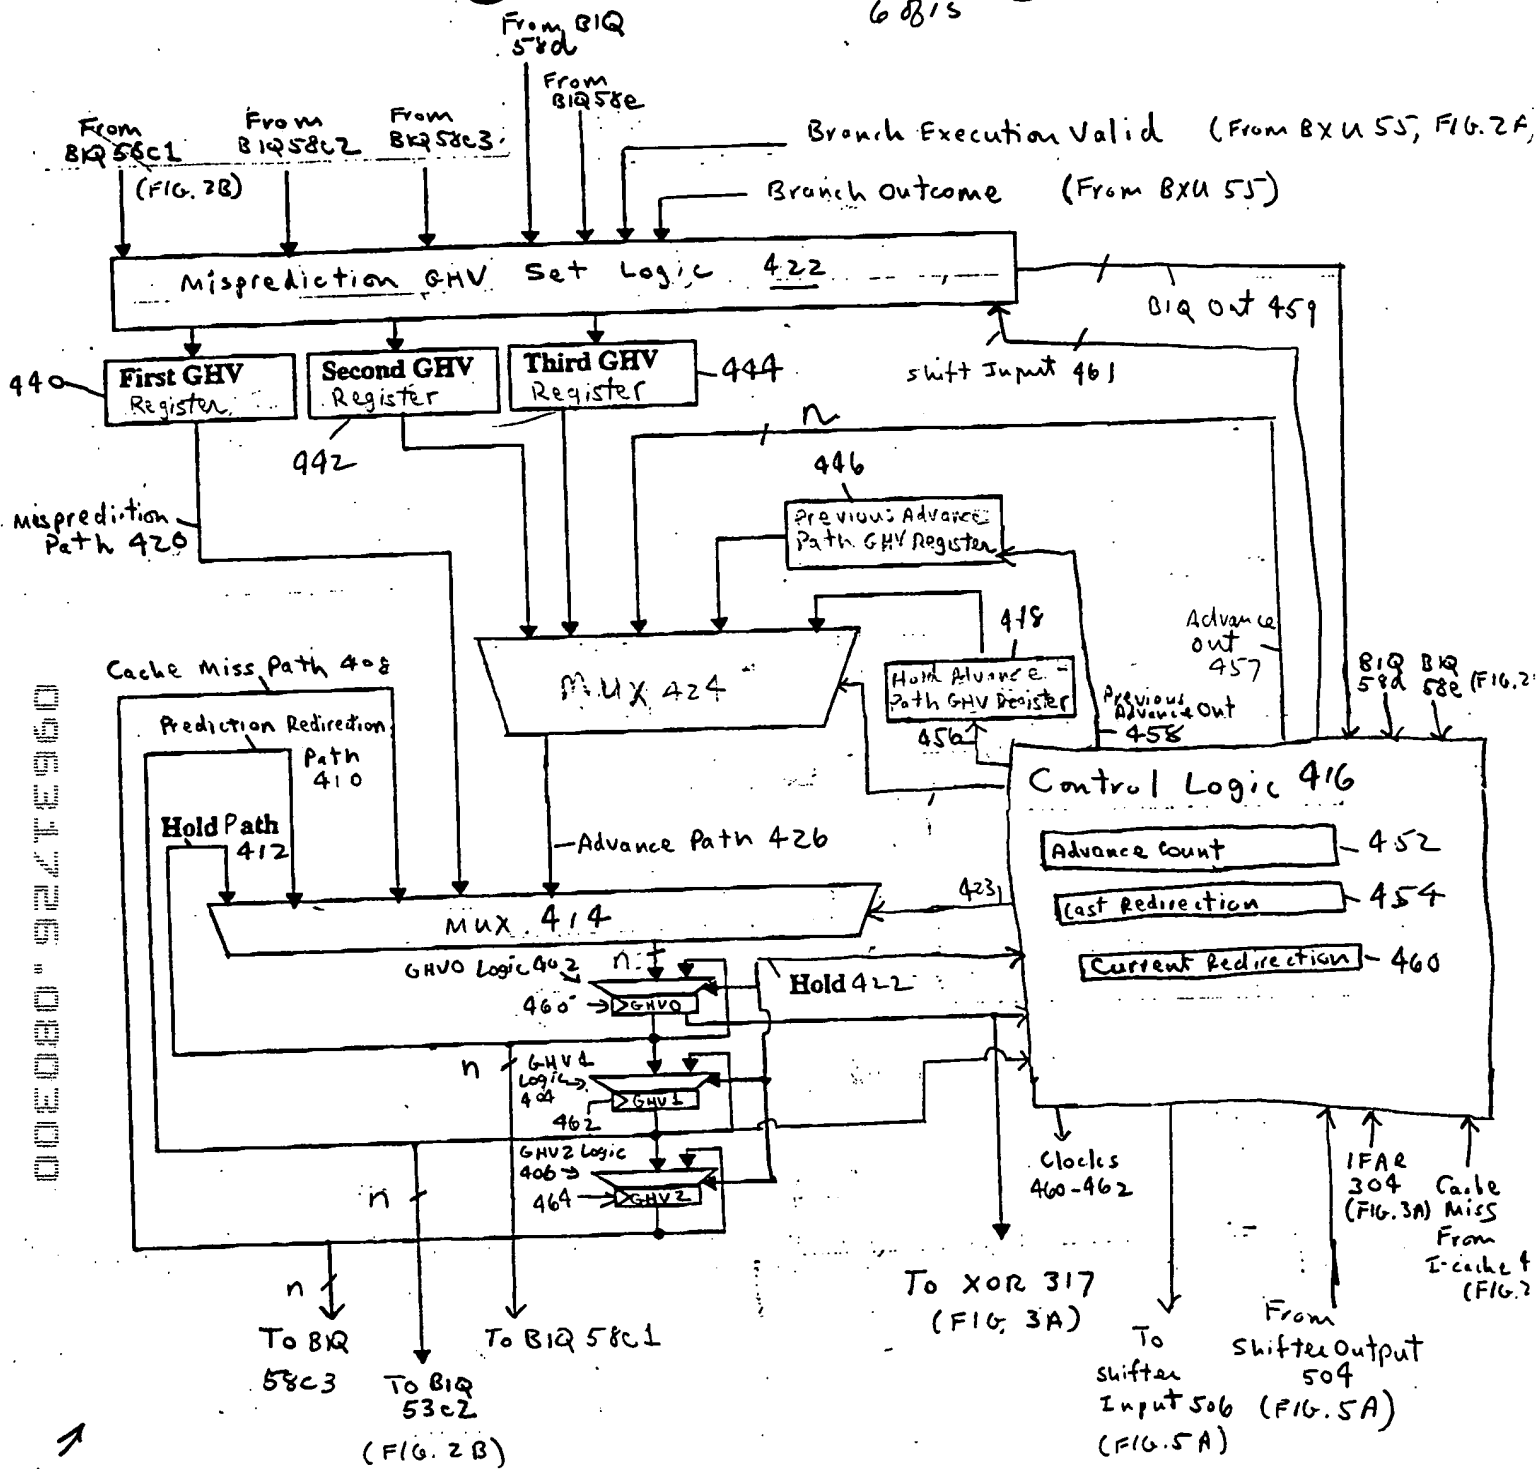 6 of 15
From BIQ
58d
From
BIQ58e
From
BIQ58c1
(FIG. 2B)
From
BIQ58c2
From
BIQ58c3
Branch Execution Valid (From BXU 55, FIG. 2A,
Branch Outcome (From BXU 55)
Misprediction GHV Set Logic 422
BIQ Out 459
Shift Input 461
440
First GHV
Register
Second GHV
Register
Third GHV
Register
444
442
n
446
Previous Advance
Path GHV Register
Misprediction
Path 420
418
Advance
out
457
Cache Miss Path 408
MUX 424
Hold Advance
Path GHV Register
BIQ
58d
BIQ
58e
(FIG. 2
Previous
Advance Out
458
456
Prediction Redirection
Path
410
Control Logic 416
Hold Path
412
Advance Path 426
Advance Count
452
423
Last Redirection
454
MUX 414
n
Current Redirection
460
GHV0 Logic 402
Hold 422
460
GHV0
n
GHV1
Logic
404
GHV1
462
GHV2 Logic
406
464
GHV2
n
Clocks
460-462
IFAR
304
(FIG. 3A)
Cache
Miss
From
I-cache 4
(FIG. 2
n
To XOR 317
(FIG. 3A)
To BIQ
58c3
To BIQ
53c2
(FIG. 2B)
To BIQ 58c1
To
Shifter
Input 506
(FIG. 5A)
From
Shifter Output
504
(FIG. 5A)